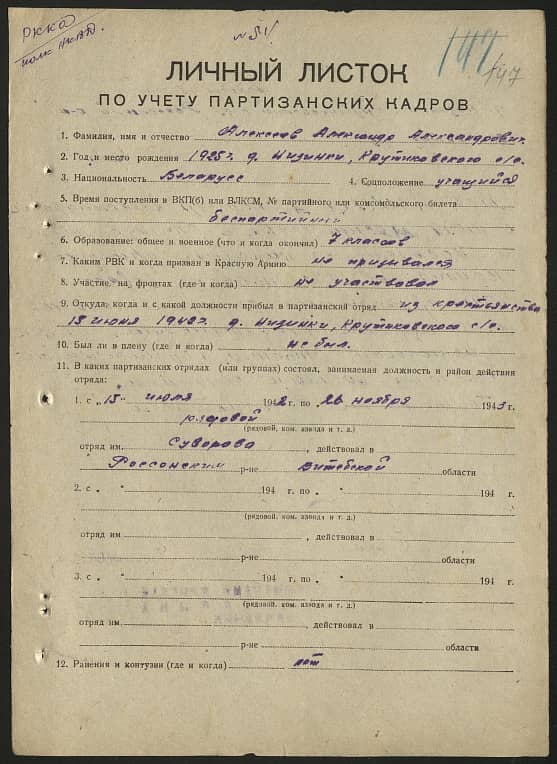 РККА
полк НКВД.
N 51/
147
147
ЛИЧНЫЙ ЛИСТОК
ПО УЧЕТУ ПАРТИЗАНСКИХ КАДРОВ
1. Фамилия, имя и отчество Алексеев Александр Александрович.
2. Год и место рождения 1925 г. д. Низинки, Крутиковского с/с.
3. Национальность Беларусс 4. Соцположение учащийся
5. Время поступления в ВКП(б) или ВЛКСМ, № партийного или комсомольского билета
беспартийный
6. Образование: общее и военное (что и когда окончил) 7 классов
7. Каким РВК и когда призван в Красную Армию не призывался
8. Участие на фронтах (где и когда) не участвовал
9. Откуда, когда и с какой должности прибыл в партизанский отряд из крестьянства
15 июня 1942 г. д. Низинки, Крутиковского с/с.
10. Был ли в плену (где и когда) не был.
11. В каких партизанских отрядах (или группах) состоял, занимаемая должность и район действия
отряда:
1. с „15" июля 1942 г. по „26 ноября 1943 г.
рядовой
(рядовой, ком. взвода и т. д.)
отряд им. Суворова, действовал в
Россонским р-не Витебской области
2. с „ " 194 г. по „ " 194 г.
(рядовой, ком. взвода и т. д.)
отряд им. , действовал в
р-не области
3. с „ " 194 г. по „ " 194 г.
(рядовой, ком. взвода и т. д.)
отряд им. , действовал в
р-не области
12. Ранения и контузии (где и когда) нет